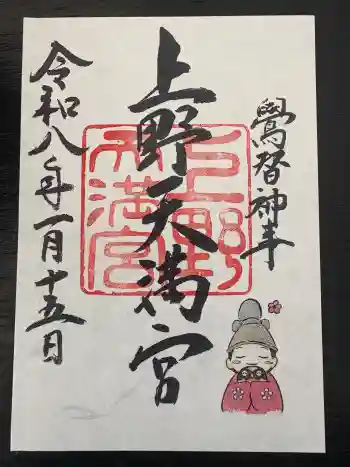 鷽替神事
上野天満宮
上野
天満宮
令和八年一月十五日